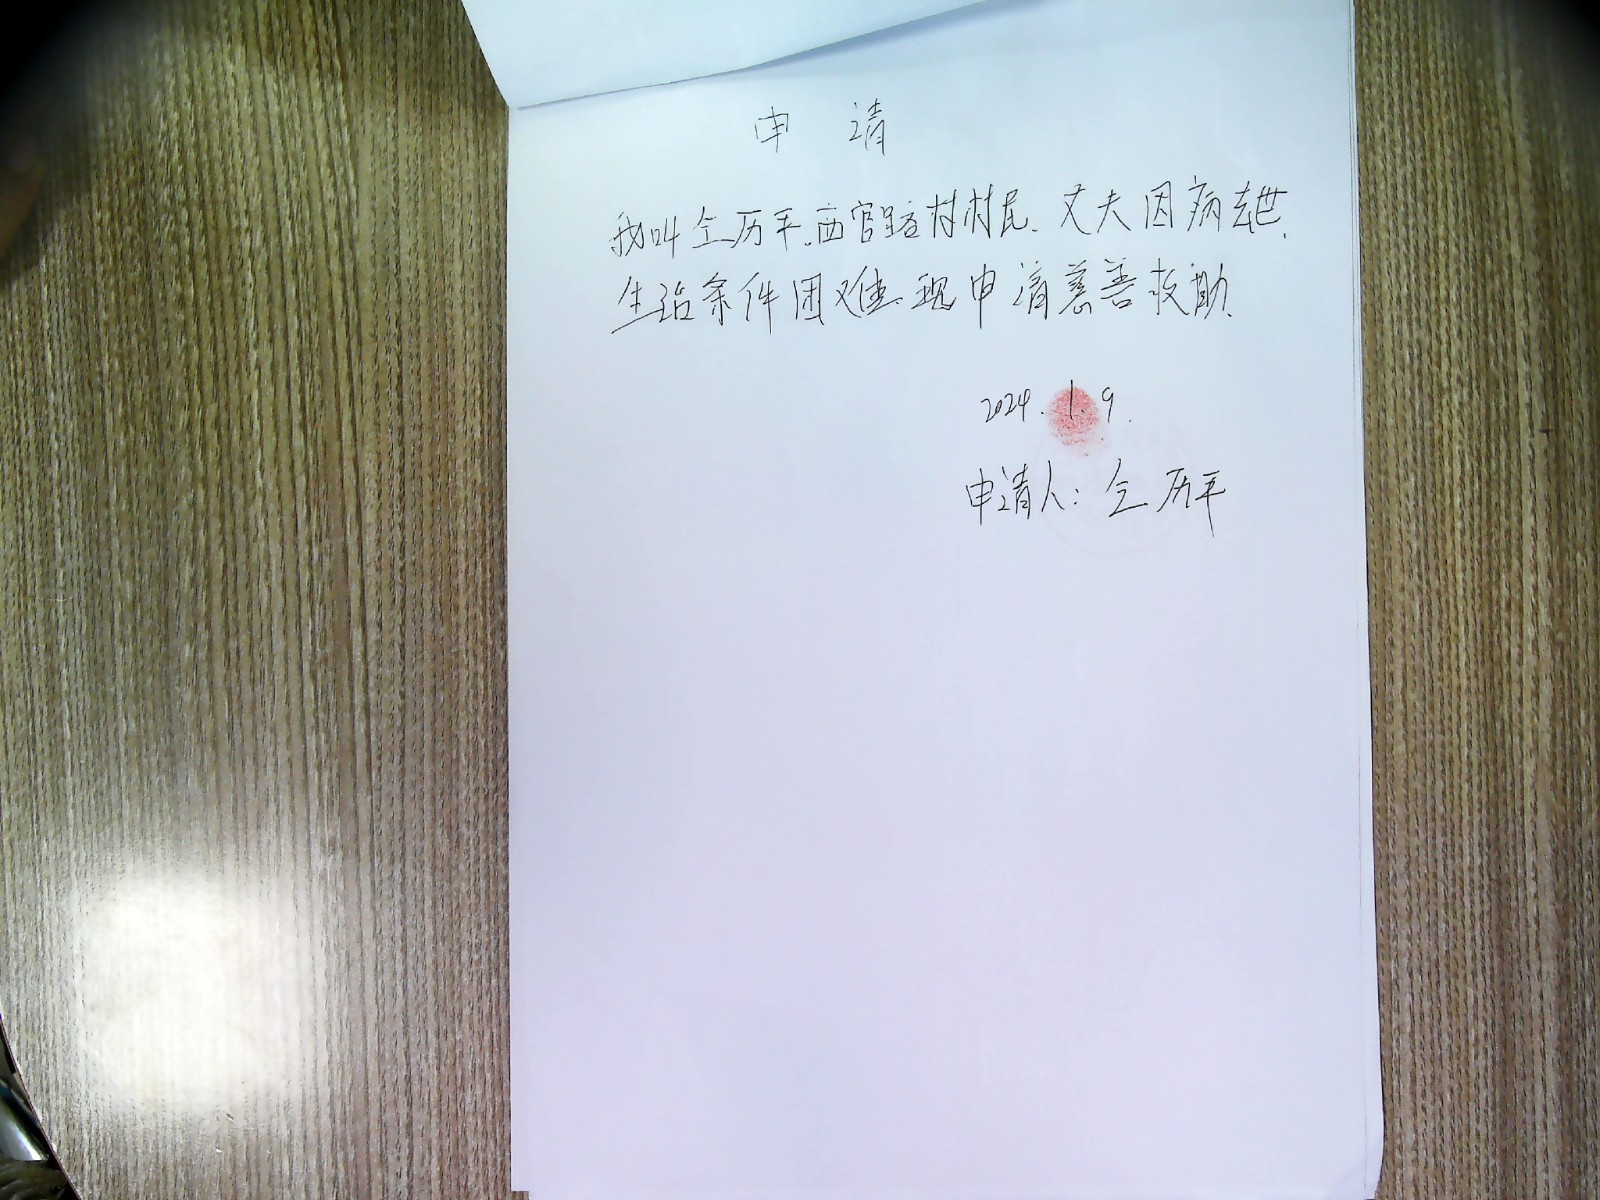 申 请
我叫仝历平.西官路村村民.丈夫因病去世.
生活条件困难.现申请慈善救助.
2024.1.9.
申请人：仝历平